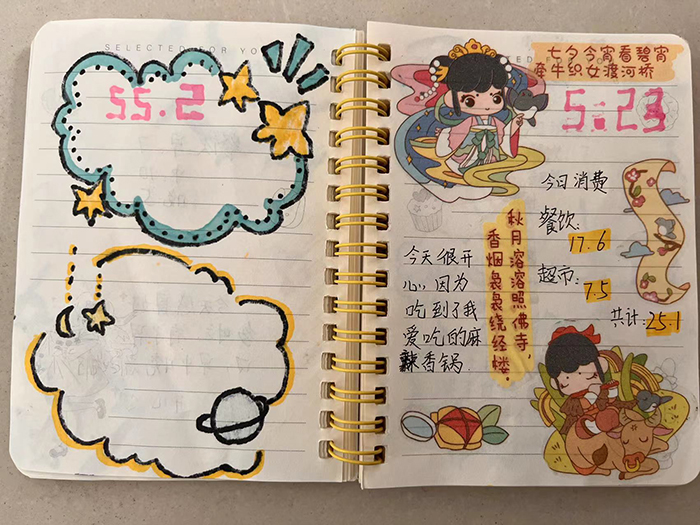 SELECTED FOR YO
55.2
七夕今宵看碧宵
牵牛织女渡河桥
5:23
今日消费
餐饮:
17.6
超市:
7.5
共计:25.1
秋月溶溶照佛寺,
香烟袅袅绕经楼.
今天很开
心,因为
吃到了我
爱吃的麻
辣香锅